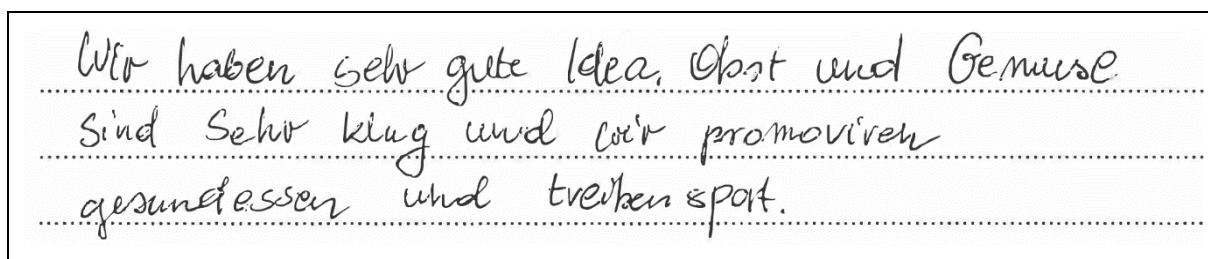 Wir haben sehr gute Idea. Obst und Gemuse
Sind Sehr klug und wir promoviren
gesundessen und treiben sport.